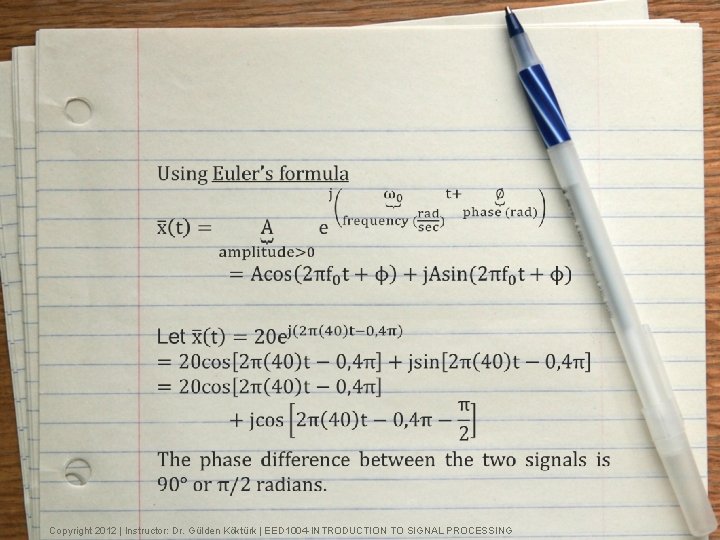 Using Euler's formula
x̅(t) = A⏟amplitude>0 e^j(ω₀⏟frequency (rad/sec) t+ ∅⏟phase (rad))
= Acos(2πf₀t + ϕ) + jAsin(2πf₀t + ϕ)
Let x̅(t) = 20e^j(2π(40)t−0,4π)
= 20cos[2π(40)t − 0,4π] + jsin[2π(40)t − 0,4π]
= 20cos[2π(40)t − 0,4π]
+ jcos[2π(40)t − 0,4π − π/2]
The phase difference between the two signals is
90° or π/2 radians.
Copyright 2012 | Instructor: Dr. Gülden Köktürk | EED1004-INTRODUCTION TO SIGNAL PROCESSING